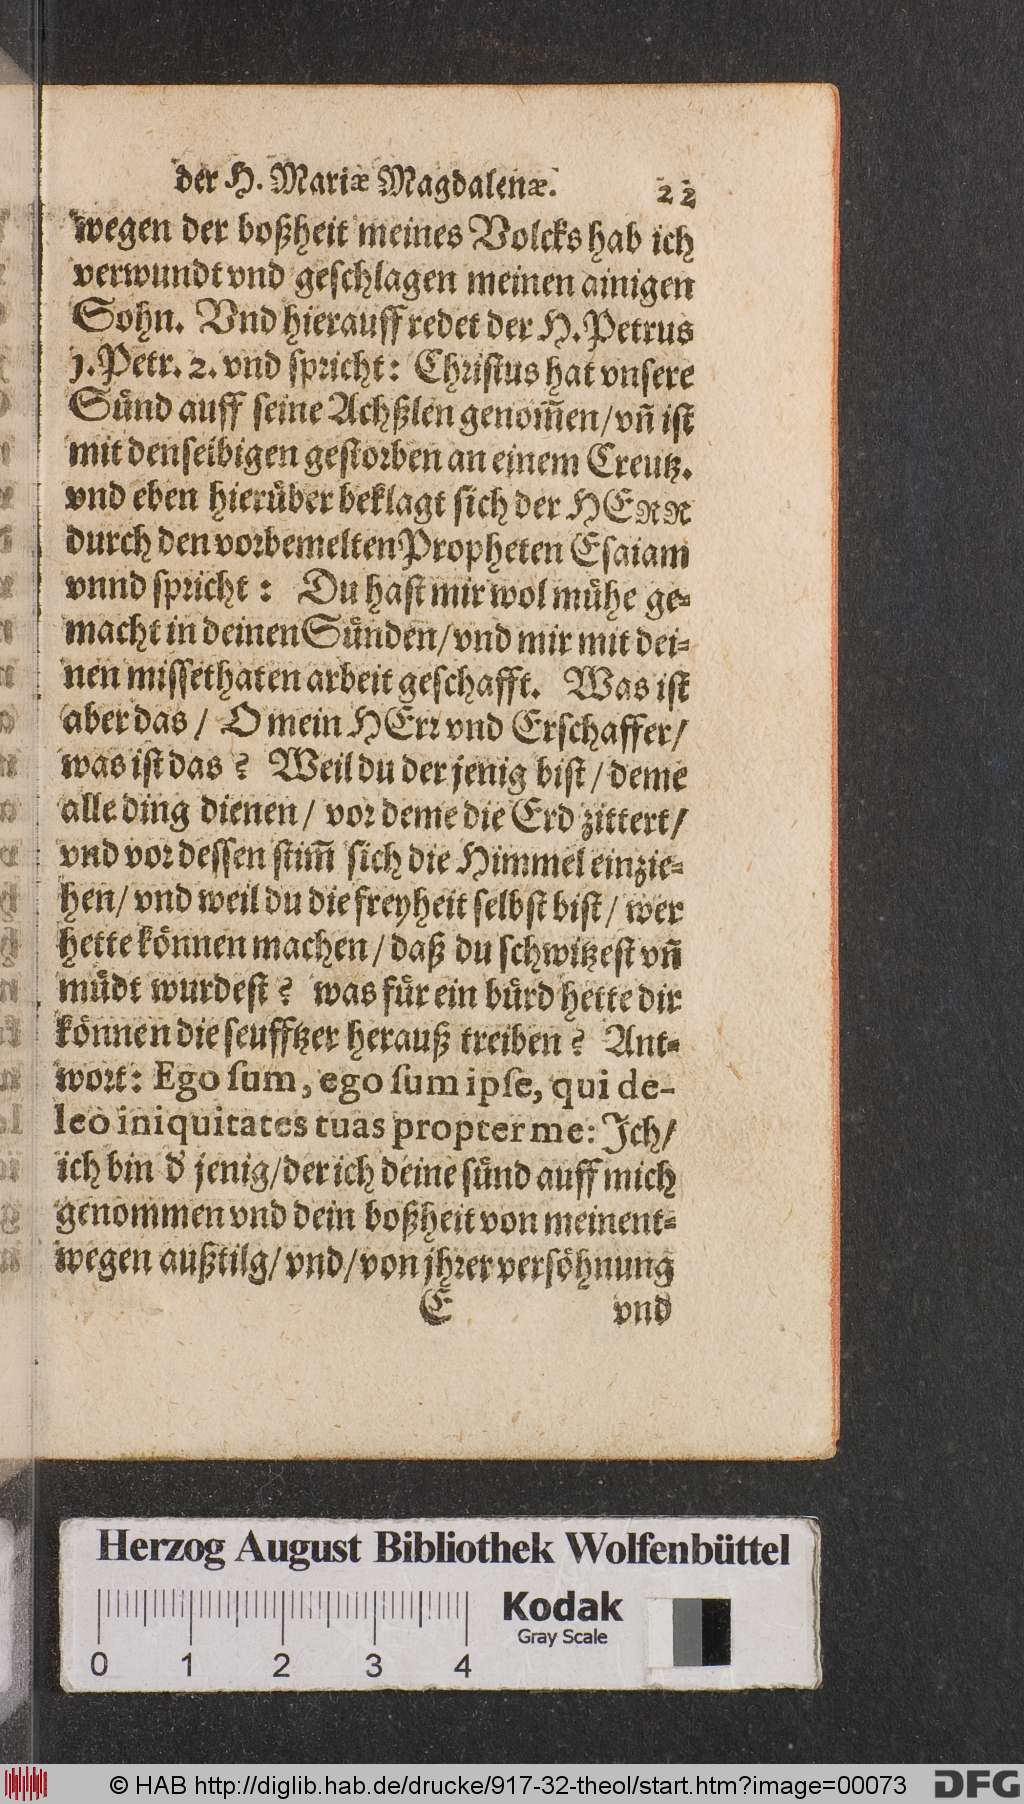 der H. Mariæ Magdalenæ. 22
wegen der boßheit meines Volcks hab ich
verwundt vnd geschlagen meinen ainigen
Sohn. Vnd hierauff redet der H. Petrus
1. Petr. 2. vnd spricht: Christus hat vnsere
Sünd auff seine Achßlen genom̃en/ vñ ist
mit denselbigen gestorben an einem Creutz.
vnd eben hierüber beklagt sich der HERR
durch den vorbemelten Propheten Esaiam
vnnd spricht: Du hast mir wol mühe ge-
macht in deinen Sünden/ vnd mir mit dei-
nen missethaten arbeit geschafft. Was ist
aber das/ O mein HErr vnd Erschaffer/
was ist das? Weil du der jenig bist/ deme
alle ding dienen/ vor deme die Erd zittert/
vnd vor dessen stim̃ sich die Himmel einzie-
hen/ vnd weil du die freyheit selbst bist/ wer
hette können machen/ daß du schwitzest vñ
müdt wurdest? was für ein bürd hette dir
können die seufftzer herauß treiben? Ant-
wort: Ego sum, ego sum ipse, qui de-
leo iniquitates tuas propter me: Ich/
ich bin d' jenig/ der ich deine sünd auff mich
genommen vnd dein boßheit von meinent-
wegen außtilg/ vnd/ von jhrer versöhnung
E vnd
Herzog August Bibliothek Wolfenbüttel
Kodak
Gray Scale
0 1 2 3 4
© HAB http://diglib.hab.de/drucke/917-32-theol/start.htm?image=00073 DFG